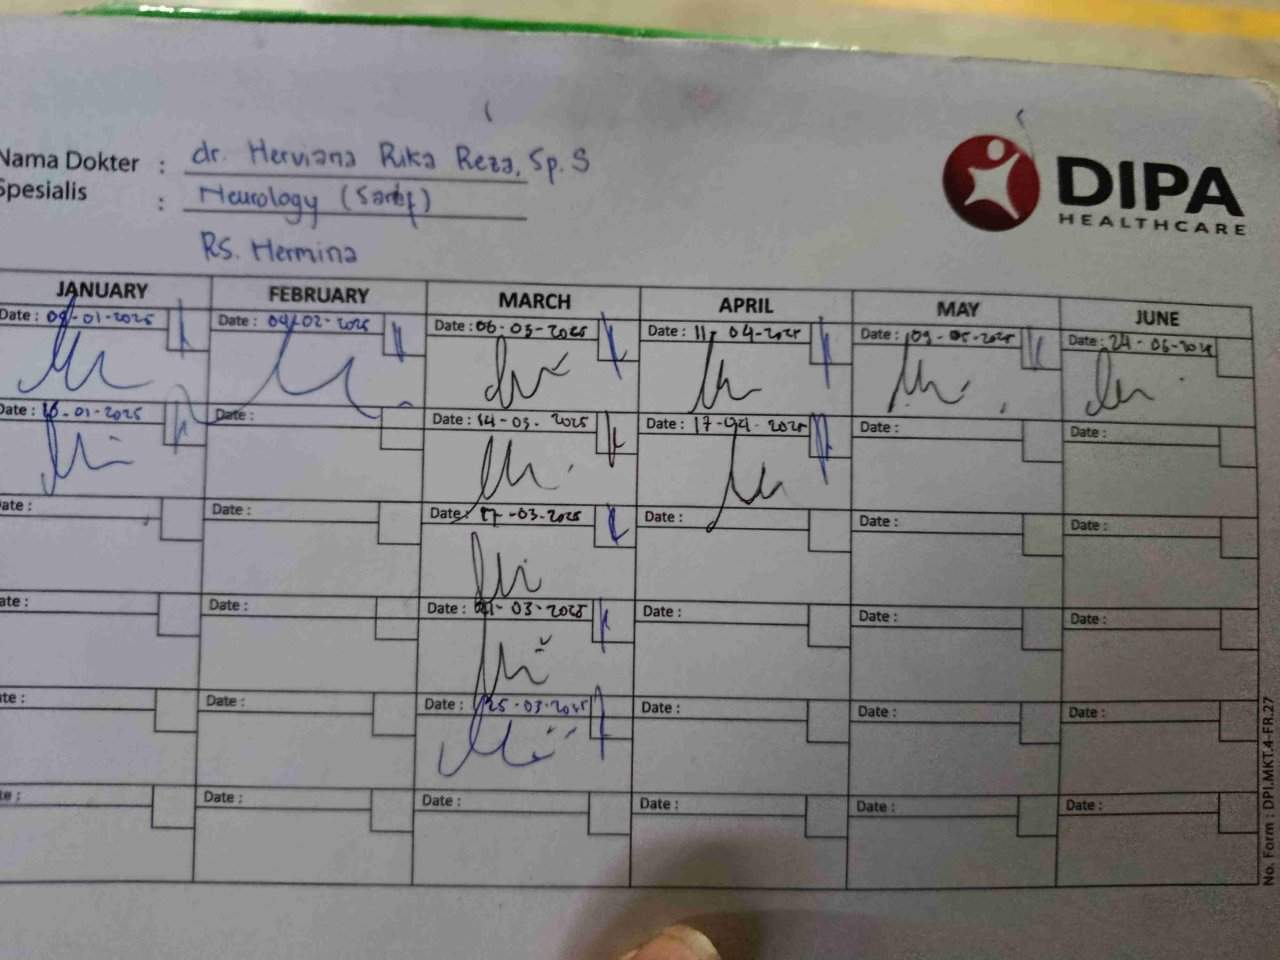 Nama Dokter : dr. Herviana Rika Reza, Sp. S
Spesialis : Neurology (Saraf)
RS. Hermina
DIPA
HEALTHCARE
JANUARY FEBRUARY MARCH APRIL MAY JUNE
Date : 09-01-2025 Date : 04-02-2025 Date : 06-03-2025 Date : 11-04-2025 Date : 09-05-2025 Date : 24-06-2025
Date : 16-01-2025 Date : Date : 14-03-2025 Date : 17-04-2025 Date : Date :
Date : Date : Date : 17-03-2025 Date : Date : Date :
Date : Date : Date : 21-03-2025 Date : Date : Date :
Date : Date : Date : 25-03-2025 Date : Date : Date :
Date : Date : Date : Date : Date : Date :
No. Form : DPI.MKT.4-FR.27